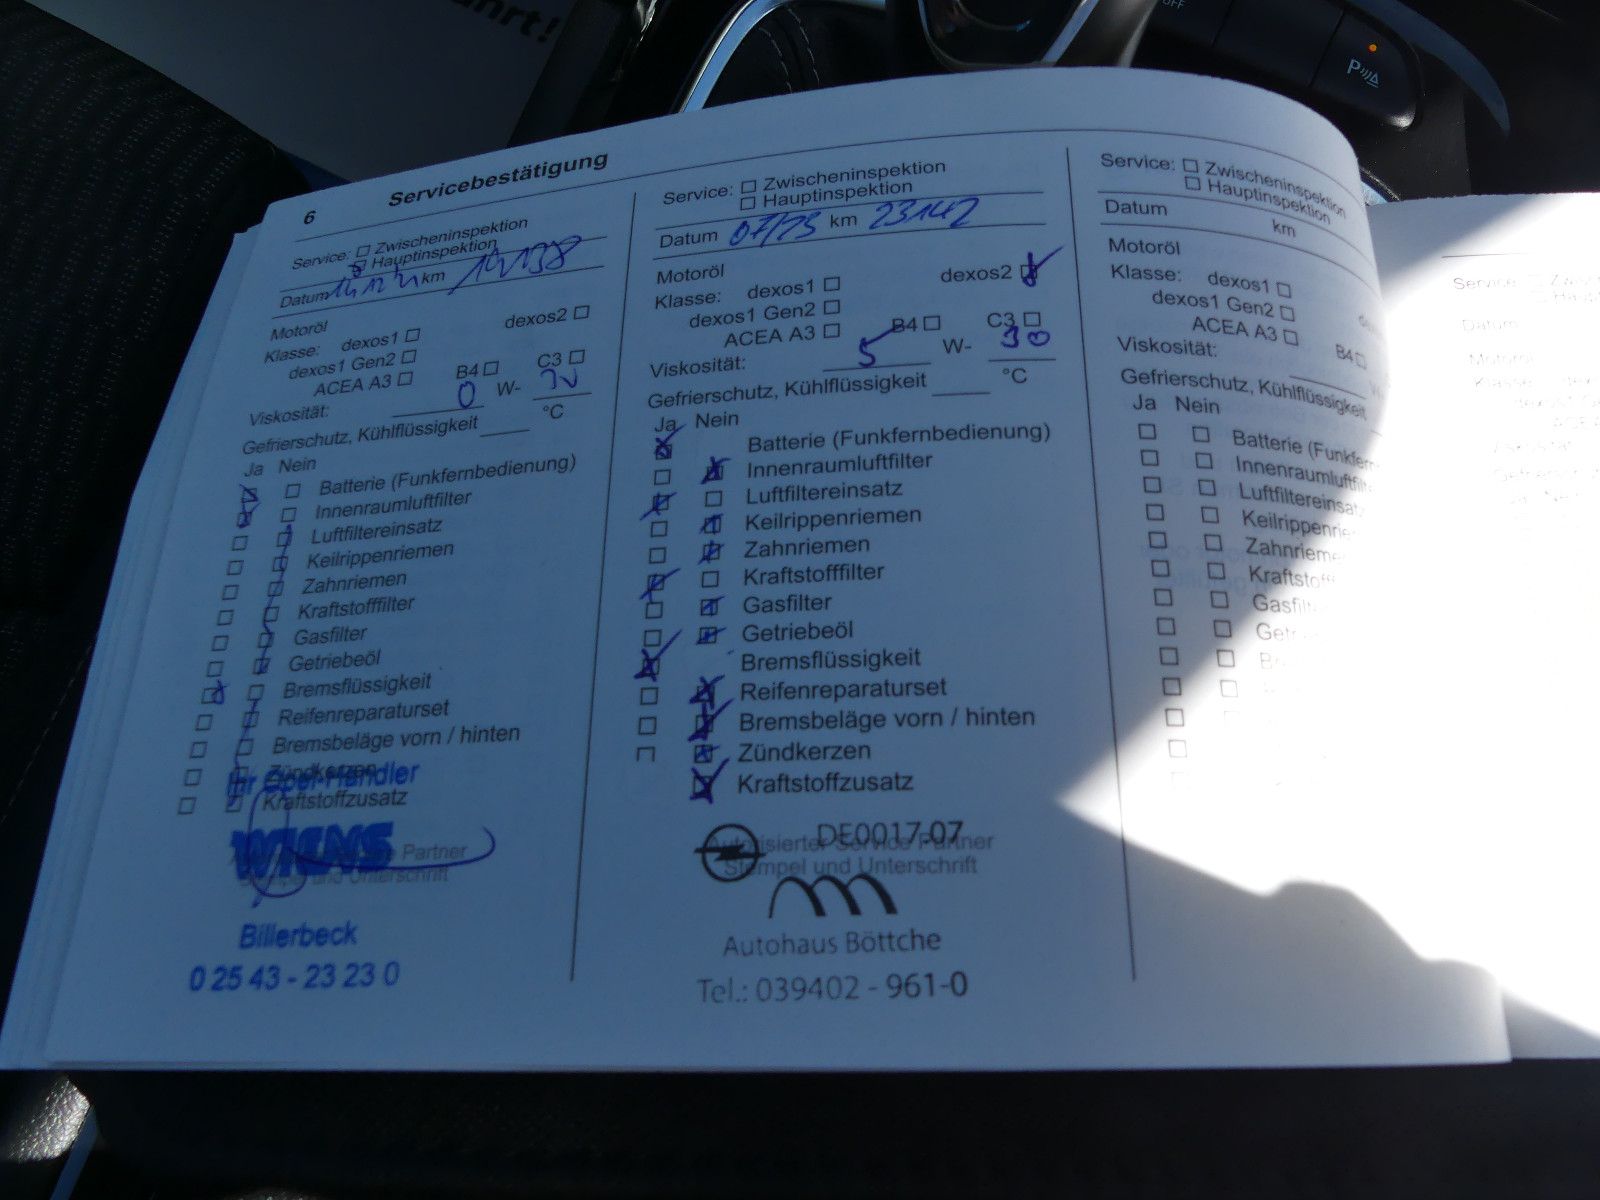 hrt!
OFF
P
6 Servicebestätigung
Service: Zwischeninspektion
Hauptinspektion
Datum km
Motoröl
Klasse: dexos1 dexos2
dexos1 Gen2
ACEA A3 B4 C3
Viskosität: 0 W-
Gefrierschutz, Kühlflüssigkeit °C
Ja Nein
Batterie (Funkfernbedienung)
Innenraumluftfilter
Luftfiltereinsatz
Keilrippenriemen
Zahnriemen
Kraftstofffilter
Gasfilter
Getriebeöl
Bremsflüssigkeit
Reifenreparaturset
Bremsbeläge vorn / hinten
Zündkerzen
Ihr Opel-Händler
Kraftstoffzusatz
WIENS
Partner
Stempel und Unterschrift
Billerbeck
0 25 43 - 23 23 0
Service: Zwischeninspektion
Hauptinspektion
Datum 07/23 km 23142
Motoröl
Klasse: dexos1 dexos2
dexos1 Gen2
ACEA A3 B4 C3
Viskosität: 5 W- 30
Gefrierschutz, Kühlflüssigkeit °C
Ja Nein
Batterie (Funkfernbedienung)
Innenraumluftfilter
Luftfiltereinsatz
Keilrippenriemen
Zahnriemen
Kraftstofffilter
Gasfilter
Getriebeöl
Bremsflüssigkeit
Reifenreparaturset
Bremsbeläge vorn / hinten
Zündkerzen
Kraftstoffzusatz
DE0017-07
Autorisierter Service Partner
Stempel und Unterschrift
Autohaus Böttche
Tel.: 039402 - 961-0
Service: Zwischeninspektion
Hauptinspektion
Datum km
Motoröl
Klasse: dexos1
dexos1 Gen2
ACEA A3 B4
Viskosität:
Gefrierschutz, Kühlflüssigkeit
Ja Nein
Batterie (Funkfern
Innenraumluftfilt
Luftfiltereinsatz
Keilrippenrie
Zahnrieme
Kraftstoff
Gasfilt
Getr
Br
Service:
Datum
Motoröl
Klasse: